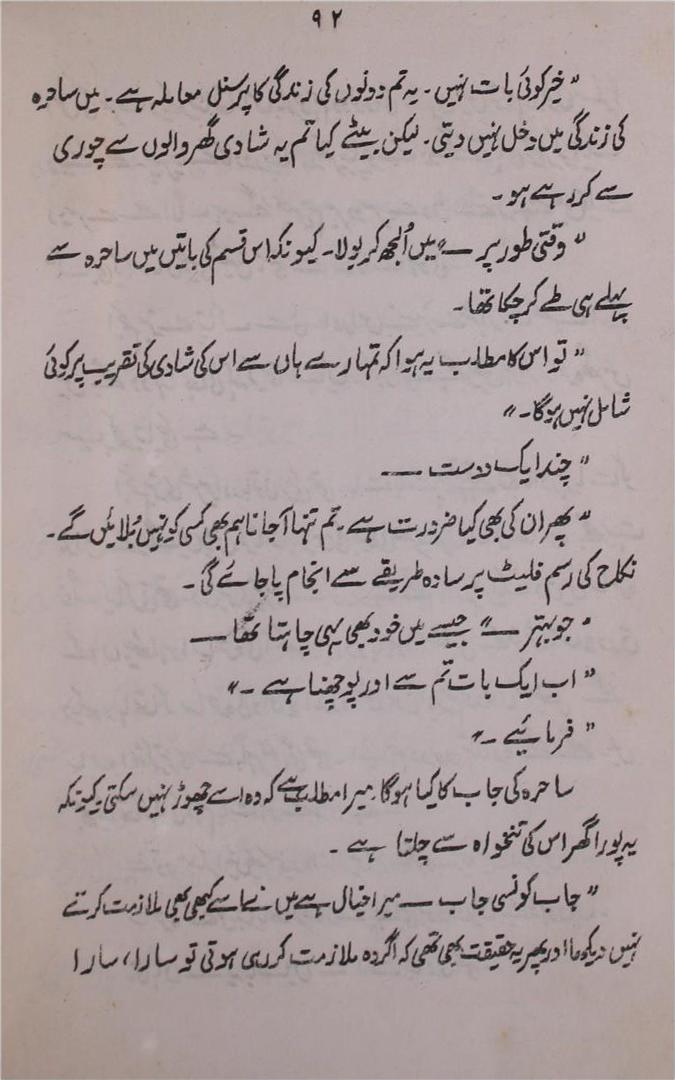 ۹۲
"خیر کوئی بات نہیں۔ یہ تم دونوں کی زندگی کا پرسنل معاملہ ہے۔ میں ساحرہ
کی زندگی میں دخل نہیں دیتی۔ لیکن بیٹے کیا تم یہ شادی گھر والوں سے چوری
سے کر رہے ہو۔
"وقتی طور پر —" میں اُلجھ کر بولا۔ کیونکہ اس قسم کی باتیں میں ساحرہ سے
پہلے ہی طے کر چکا تھا۔
"تو اس کا مطلب یہ ہوا کہ تمہارے ہاں سے اس کی شادی کی تقریب پر کوئی
شامل نہیں ہوگا۔"
"چند ایک دوست ——
"پھر ان کی بھی کیا ضرورت ہے۔ تم تنہا آ جانا ہم بھی کسی کو نہیں بُلائیں گے۔
نکاح کی رسم فلیٹ پر سادہ طریقے سے انجام پا جائے گی۔
"جو بہتر —" جیسے میں خود بھی یہی چاہتا تھا —
"اب ایک بات تم سے اور پوچھنا ہے۔"
"فرمائیے۔"
ساحرہ کی جاب کا کیا ہوگا۔ میرا مطلب ہے کہ وہ اسے چھوڑ نہیں سکتی۔ کیونکہ
یہ پورا گھر اس کی تنخواہ سے چلتا ہے۔
"جاب کونسی جاب — میرا خیال ہے میں نے اسے کبھی بھی ملازمت کرتے
نہیں دیکھا اور پھر یہ حقیقت بھی تھی کہ اگر وہ ملازمت کر رہی ہوتی تو سارا، سارا